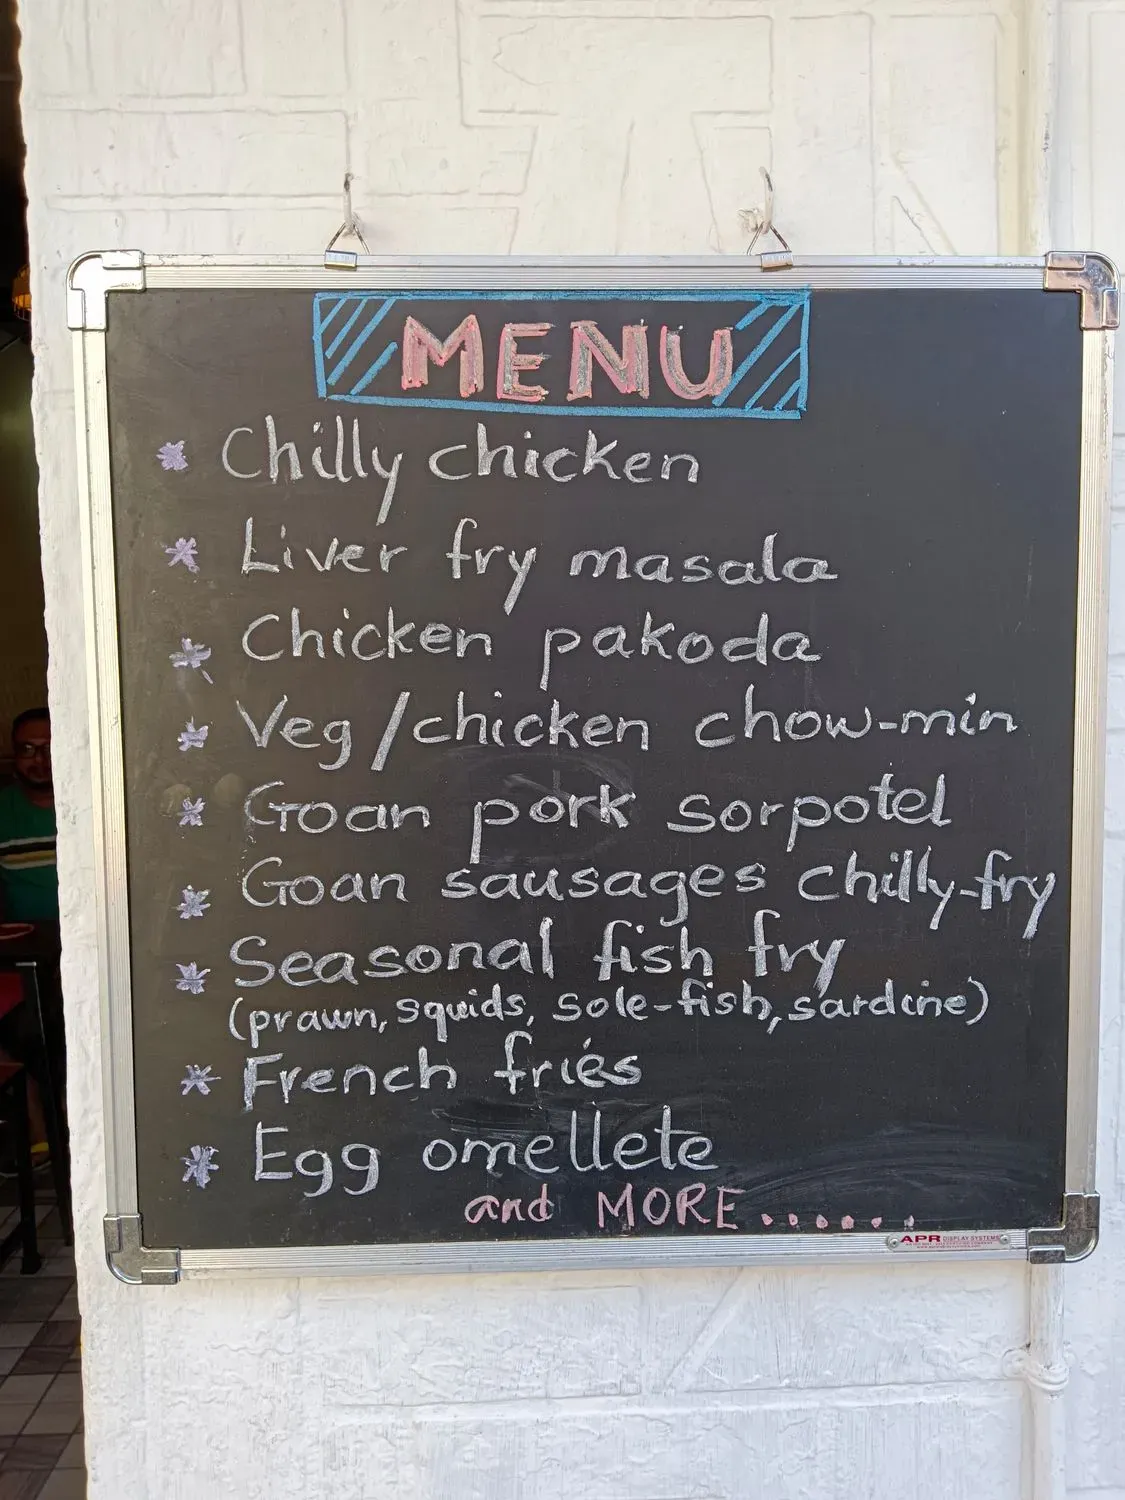 MENU
* Chilly chicken
* Liver fry masala
* Chicken pakoda
* Veg/chicken chow-min
* Goan pork sorpotel
* Goan sausages chilly-fry
* Seasonal fish fry
(prawn, squids, sole-fish, sardine)
* French fries
* Egg omellete
and MORE......
APR DISPLAY SYSTEMS